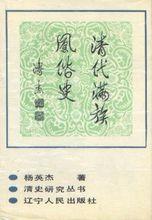 清代满族
风俗史
杨英杰 著
清史研究丛书
辽宁人民出版社